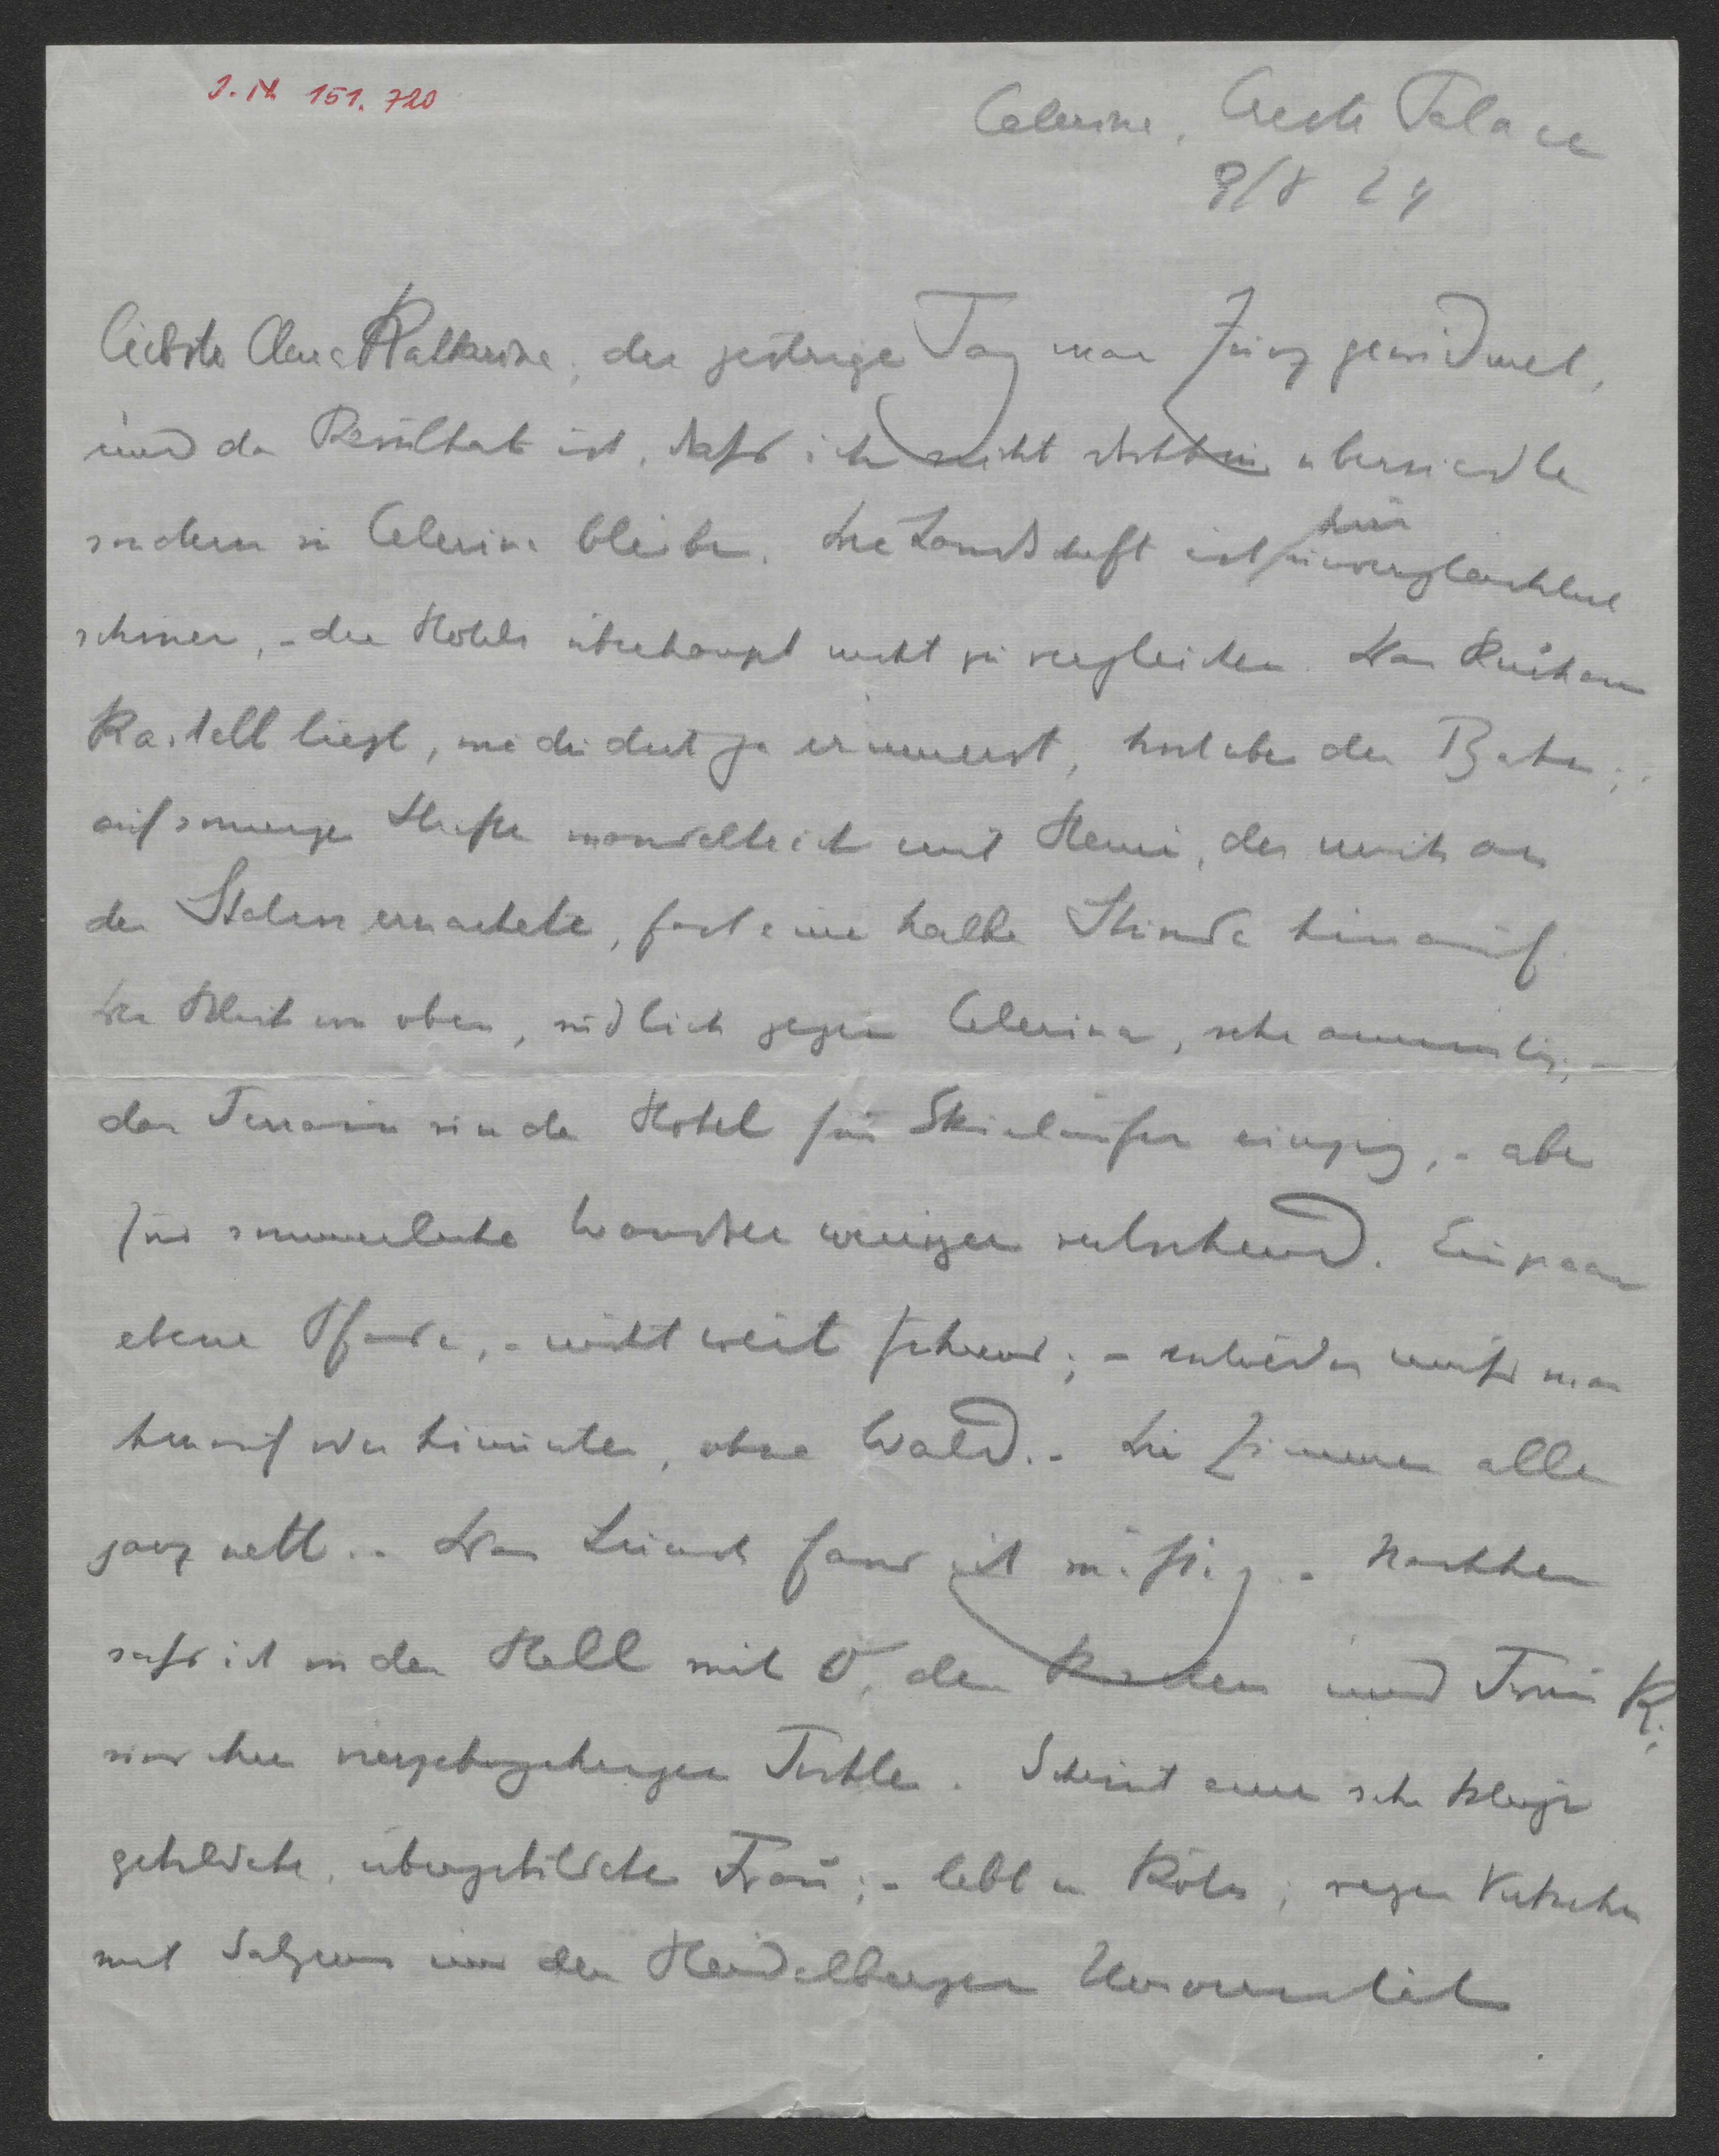 I. N. 151.720
Celerina, Cresta Palace
9/8 24
Liebste Clara Katharina, der gestrige Tag war Zuoz gewidmet,
und das Resultat ist, dass ich nicht dorthin übersiedle
sondern in Celerina bleibe. Die Landschaft ist hier unvergleichlich
schöner, - die Hotels überhaupt nicht zu vergleichen. Das Kurhaus
Kastell liegt, wie du dich ja erinnerst, hoch über der Bahn;
auf sonniger Straße wandelte ich mit Heini, der mich an
der Station erwartete, fast eine halbe Stunde hinauf.
Der Blick von oben, südlich gegen Celerina, sehr anmutig, -
das Terrain um das Hotel für Skiläufer einzig, - aber
für sommerliche Wandrer weniger entsprechend. Ein paar
ebene Pfade, - nicht weit führend; - entweder muss man
hinauf oder hinunter, ohne Wald. - Die Zimmer alle
ganz nett. - Den Lunch fand ich mäßig. - Nachher
saß ich in der Hall mit O, den und Frau K.
und ihrer Tochter. Scheint eine sehr kluge
gebildete, übergebildete Frau; - lebt in Köln;
mit und der Heidelberger Universität